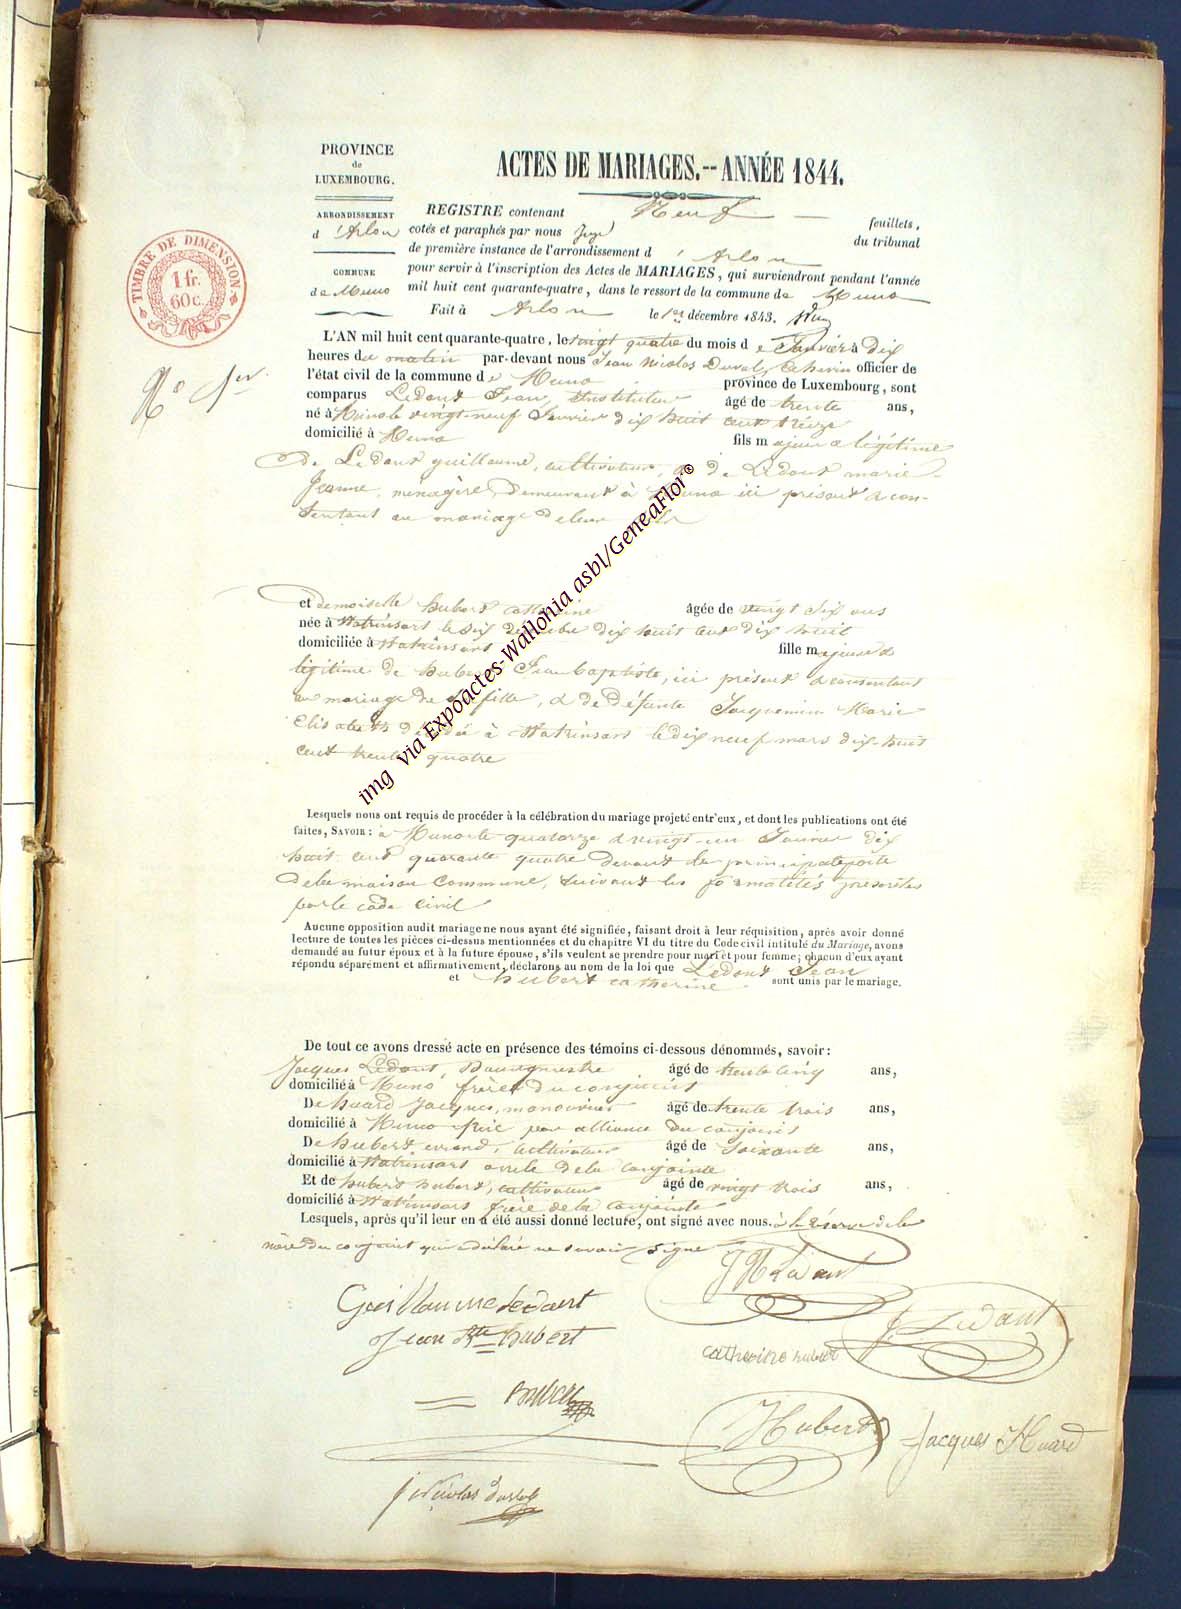 PROVINCE
de
LUXEMBOURG.
ACTES DE MARIAGES.--ANNÉE 1844.
ARRONDISSEMENT
d'Arlon
COMMUNE
de Muno
TIMBRE DE DIMENSION
1 fr.
60 c.
REGISTRE contenant Neuf feuillets,
cotés et paraphés par nous Juge du tribunal
de première instance de l'arrondissement d'Arlon
pour servir à l'inscription des Actes de MARIAGES, qui surviendront pendant l'année
mil huit cent quarante-quatre, dans le ressort de la commune de Muno
Fait à Arlon le 1er décembre 1843.
No 1er
L'AN mil huit cent quarante-quatre, le vingt quatre du mois de Janvier à dix
heures du matin par-devant nous Jean Nicolas Duval, Echevin officier de
l'état civil de la commune de Muno province de Luxembourg, sont
comparus Ledant Jean, Instituteur âgé de trente ans,
né à Muno le vingt-neuf Janvier dix huit cent treize
domicilié à Muno fils majeur & légitime
de Ledant guillaume, cultivateur, & de Ledant marie
Jeanne, ménagère, demeurant à Muno ici présent & con-
sentant au mariage de leur fils
et demoiselle hubert catherine âgée de vingt six ans
née à Watrinsart le dix dix huit cent dix huit
domiciliée à Watrinsart fille majeure &
légitime de hubert Jean baptiste, ici présent & consentant
au mariage de sa fille, & de Défunte Jacquemin Marie
Elisabeth décédée à Watrinsart le dix neuf mars dix-huit
cent trente quatre
Lesquels nous ont requis de procéder à la célébration du mariage projeté entr'eux, et dont les publications ont été
faites, SAVOIR : à Muno le quatorze & vingt-un Janvier dix
huit cent quarante quatre devant la principale porte
de la maison Commune, suivant les formalités prescrites
par le code civil
Aucune opposition audit mariage ne nous ayant été signifiée, faisant droit à leur réquisition, après avoir donné
lecture de toutes les pièces ci-dessus mentionnées et du chapitre VI du titre du Code civil intitulé du Mariage, avons
demandé au futur époux et à la future épouse, s'ils veulent se prendre pour mari et pour femme; chacun d'eux ayant
répondu séparément et affirmativement, déclarons au nom de la loi que Ledant Jean
et hubert catherine sont unis par le mariage.
De tout ce avons dressé acte en présence des témoins ci-dessous dénommés, savoir :
Jacques Ledant, Bourgmestre âgé de trente cinq ans,
domicilié à Muno frère du conjoint
De huard Jacques, manouvrier âgé de trente trois ans,
domicilié à Muno frère par alliance du conjoint
De hubert evrard, cultivateur âgé de soixante ans,
domicilié à Watrinsart oncle de la conjointe
Et de hubert hubert, cultivateur âgé de vingt trois ans,
domicilié à Watrinsart frère de la conjointe
Lesquels, après qu'il leur en a été aussi donné lecture, ont signé avec nous. à la réserve de la
mère du conjoint qui a déclaré ne savoir signer
Guillaume Ledant
J Ledant
Jean Bte hubert
catherine hubert
Hubert
Jacques Huard
j Nicolas duval
img via Expoactes-Wallonia asbl/GeneaFlor©